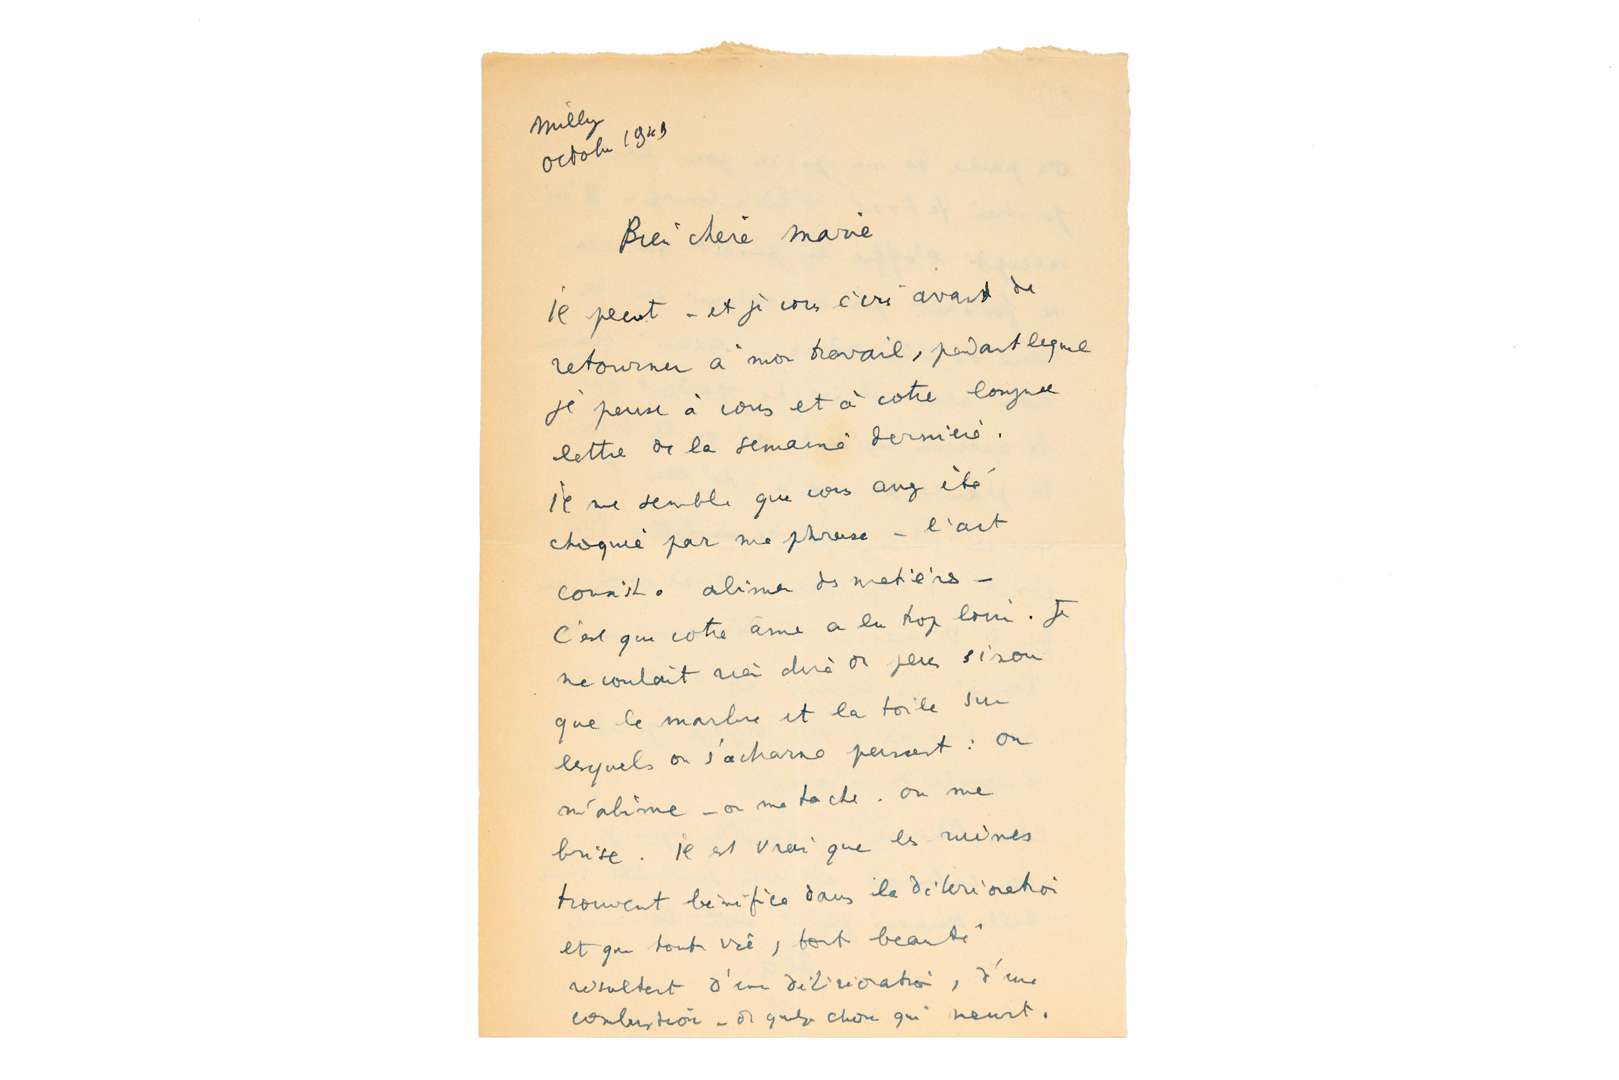 Milly
octobre 1949
Bien chère Marie
Il pleut - et je vous écris avant de
retourner à mon travail, pendant lequel
je pense à vous et à votre longue
lettre de la semaine dernière.
Il me semble que vous avez été
choquée par ma phrase - l'art
consiste à abîmer des matières -
C'est que votre âme a lu trop loin. Je
ne voulait rien dire de plus sinon
que le marbre et la toile sur
lesquels on s'acharne pensent : on
m'abîme - on me tache. on me
brise. Il est vrai que les ruines
trouvent bénéfice dans la détérioration
et que toute vie, toute beauté
résultent d'une détérioration, d'une
combustion - de quelque chose qui meurt.